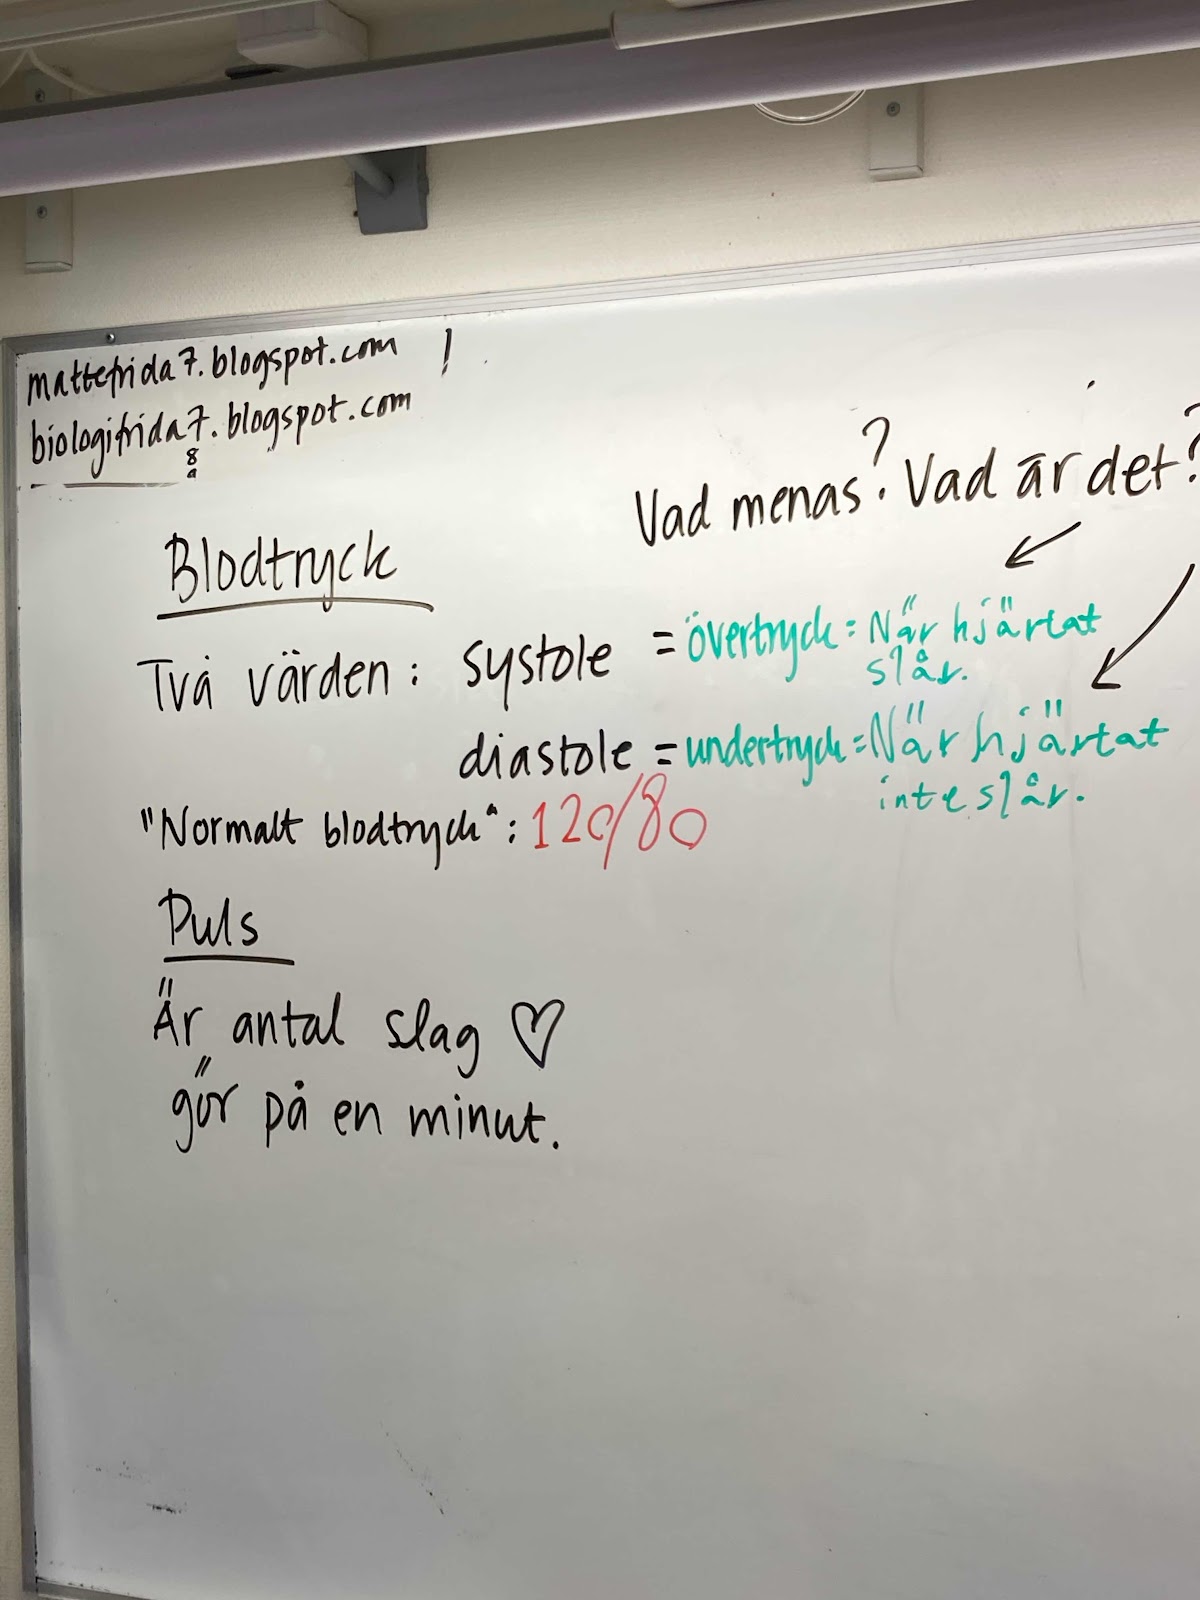 mattefrida7.blogspot.com !
biologifrida7.blogspot.com
8
a
Vad menas? Vad är det?
Blodtryck
Två värden: systole = övertryck = När hjärtat
slår.
diastole = undertryck = När hjärtat
inte slår.
"Normalt blodtryck": 120/80
Puls
Är antal slag ♡
gör på en minut.